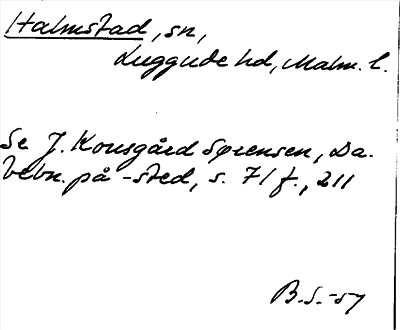 Halmstad, sn,
Luggude hd, Malm. l.
Se J. Kousgård Sørensen, Da.
bebn. på -sted, s. 71 f., 211
B.S.-57